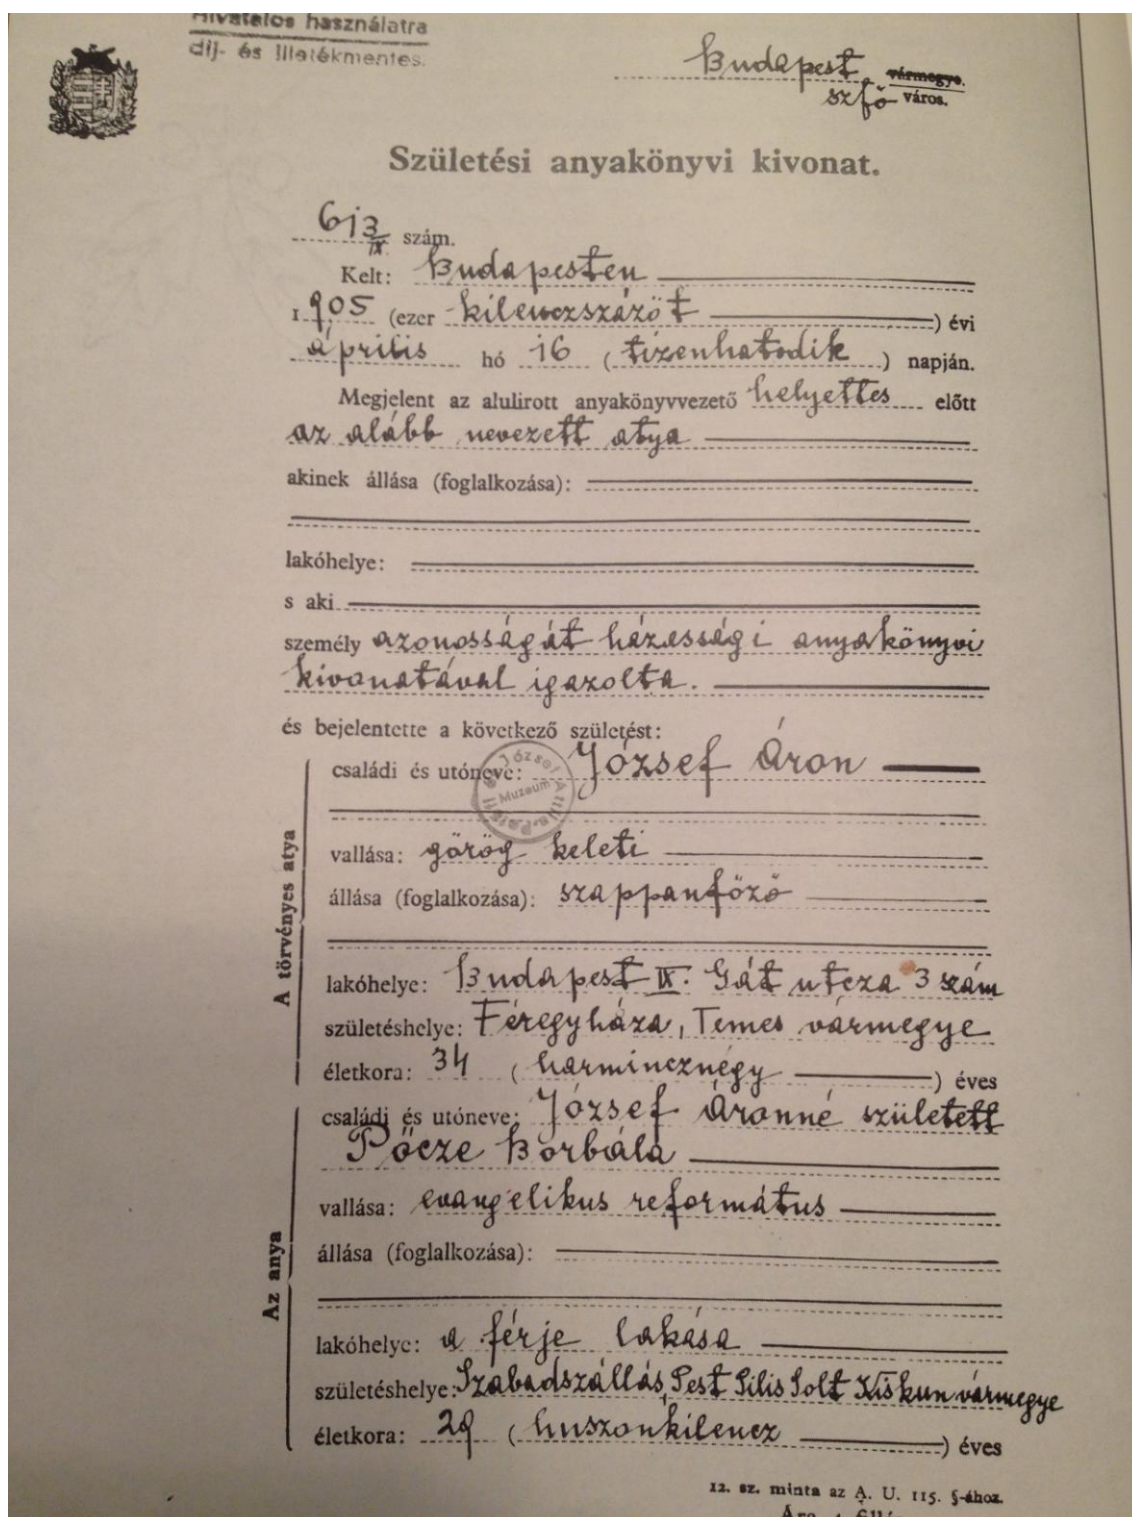 Hivatalos használatra
díj- és illetékmentes.
Budapest vármegye.
szfő város.
Születési anyakönyvi kivonat.
613/IX szám.
Kelt: Budapesten
1905 (ezer kilenczszázöt) évi
április hó 16 (tizenhatodik) napján.
Megjelent az alulirott anyakönyvvezető helyettes előtt
az alább nevezett atya
akinek állása (foglalkozása):
lakóhelye:
s aki
személy azonosságát házassági anyakönyvi
kivonatával igazolta.
és bejelentette a következő születést:
A törvényes atya
családi és utóneve: József Áron
József Attila
Muzeum
vallása: görög keleti
állása (foglalkozása): szappanfőző
lakóhelye: Budapest IX. Gát utcza 3 szám
születéshelye: Féregyháza, Temes vármegye
életkora: 34 (harmincznégy) éves
Az anya
családi és utóneve: József Áronné született
Pőcze Borbála
vallása: evangelikus református
állása (foglalkozása):
lakóhelye: a férje lakása
születéshelye: Szabadszállás, Pest Pilis Solt Kiskun vármegye
életkora: 29 (huszonkilencz) éves
12. sz. minta az A. U. 115. §-ához.